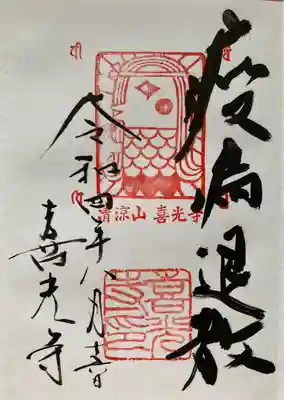 疫病退散
清涼山 喜光寺
令和四年八月吉日
喜光寺